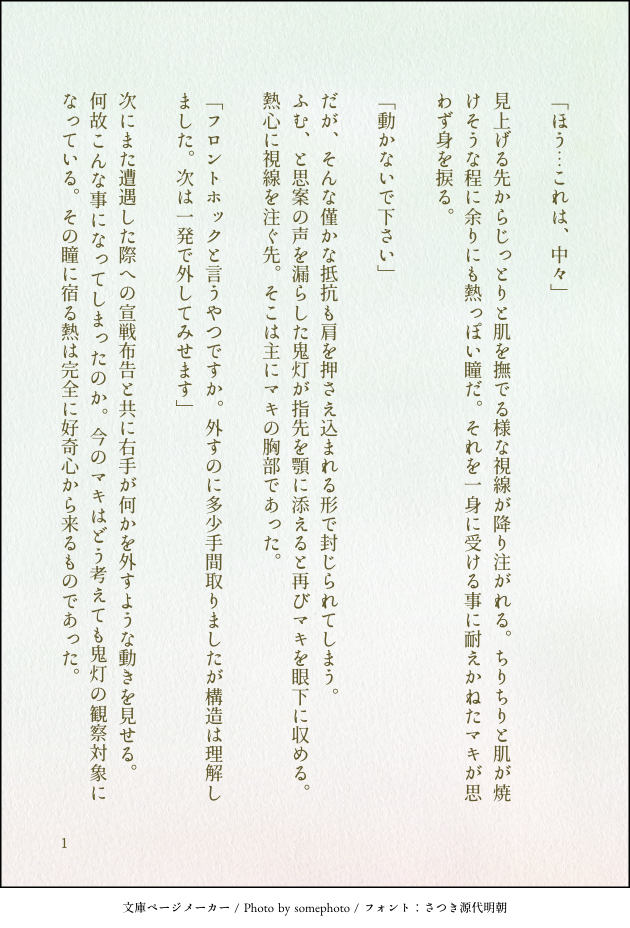 「ほう…これは、中々」
見上げる先からじっとりと肌を撫でる様な視線が降り注がれる。ちりちりと肌が焼
けそうな程に余りにも熱っぽい瞳だ。それを一身に受ける事に耐えかねたマキが思
わず身を捩る。
「動かないで下さい」
だが、そんな僅かな抵抗も肩を押さえ込まれる形で封じられてしまう。
ふむ、と思案の声を漏らした鬼灯が指先を顎に添えると再びマキを眼下に収める。
熱心に視線を注ぐ先。そこは主にマキの胸部であった。
「フロントホックと言うやつですか。外すのに多少手間取りましたが構造は理解し
ました。次は一発で外してみせます」
次にまた遭遇した際への宣戦布告と共に右手が何かを外すような動きを見せる。
何故こんな事になってしまったのか。今のマキはどう考えても鬼灯の観察対象に
なっている。その瞳に宿る熱は完全に好奇心から来るものであった。
1
文庫ページメーカー / Photo by somephoto / フォント：さつき源代明朝